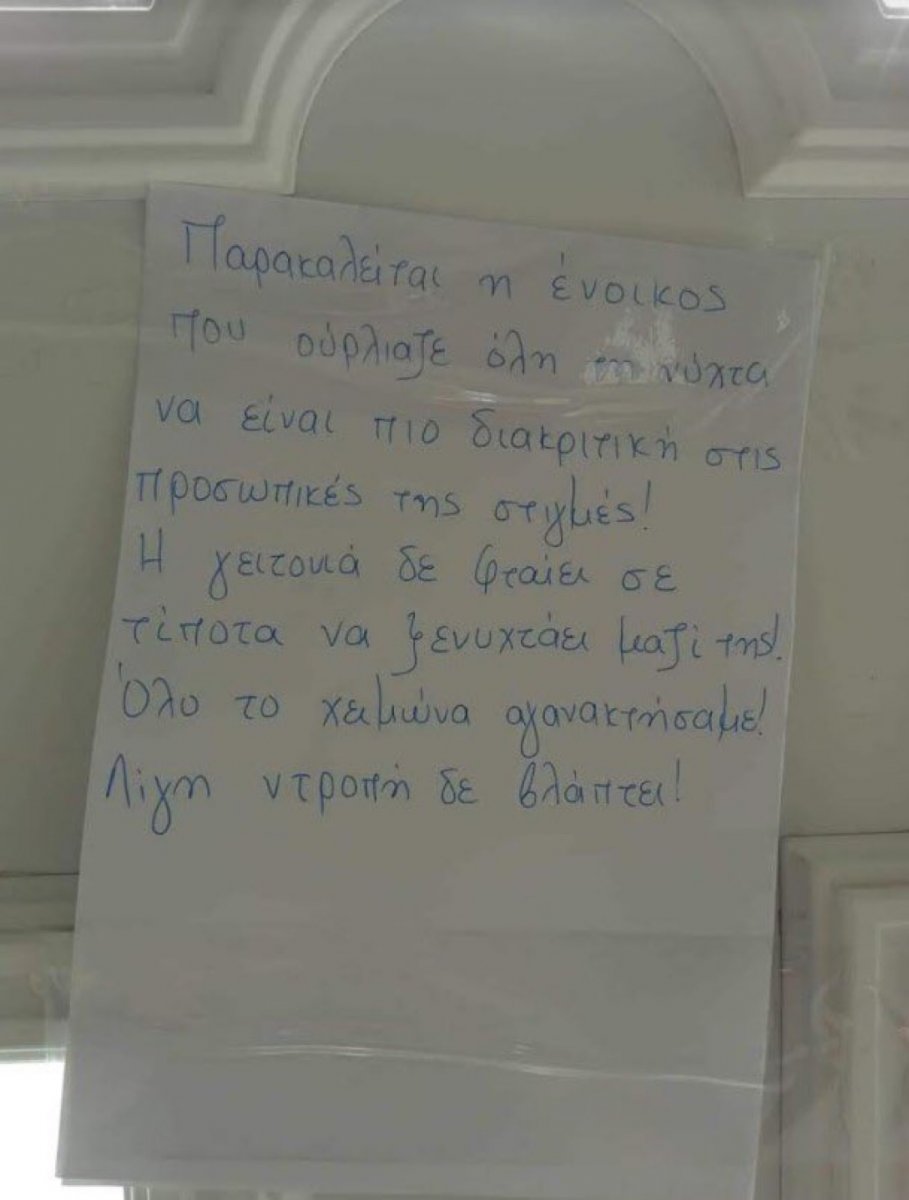 Παρακαλείται η ένοικος
που ούρλιαζε όλη τη νύχτα
να είναι πιο διακριτική στις
προσωπικές της στιγμές!
Η γειτονιά δε φταίει σε
τίποτα να ξενυχτάει μαζί της!
Όλο το χειμώνα αγανακτήσαμε!
Λίγη ντροπή δε βλάπτει!